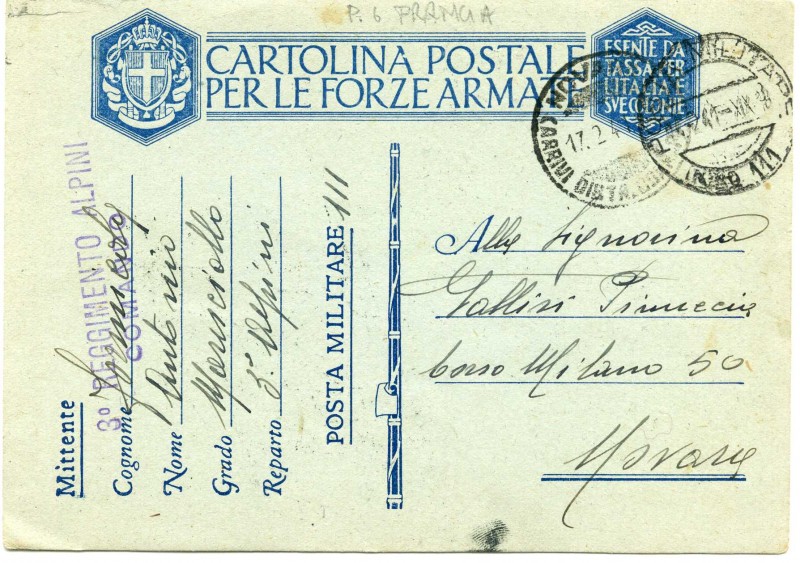 P. 6 FRANCIA
CARTOLINA POSTALE
PER LE FORZE ARMATE
ESENTE DA
TASSA PER
L'ITALIA E
SVE COLONIE
ARRIVI DISTA
17.2.4
MILITARE
N.° 111
3° REGGIMENTO ALPINI
COMANDO
Mittente
Cognome
Nome Antonio
Grado Maresciallo
Reparto 3° Alpini
POSTA MILITARE 111
Alla Signorina
Pinuccia
Corso Milano 50
Novara